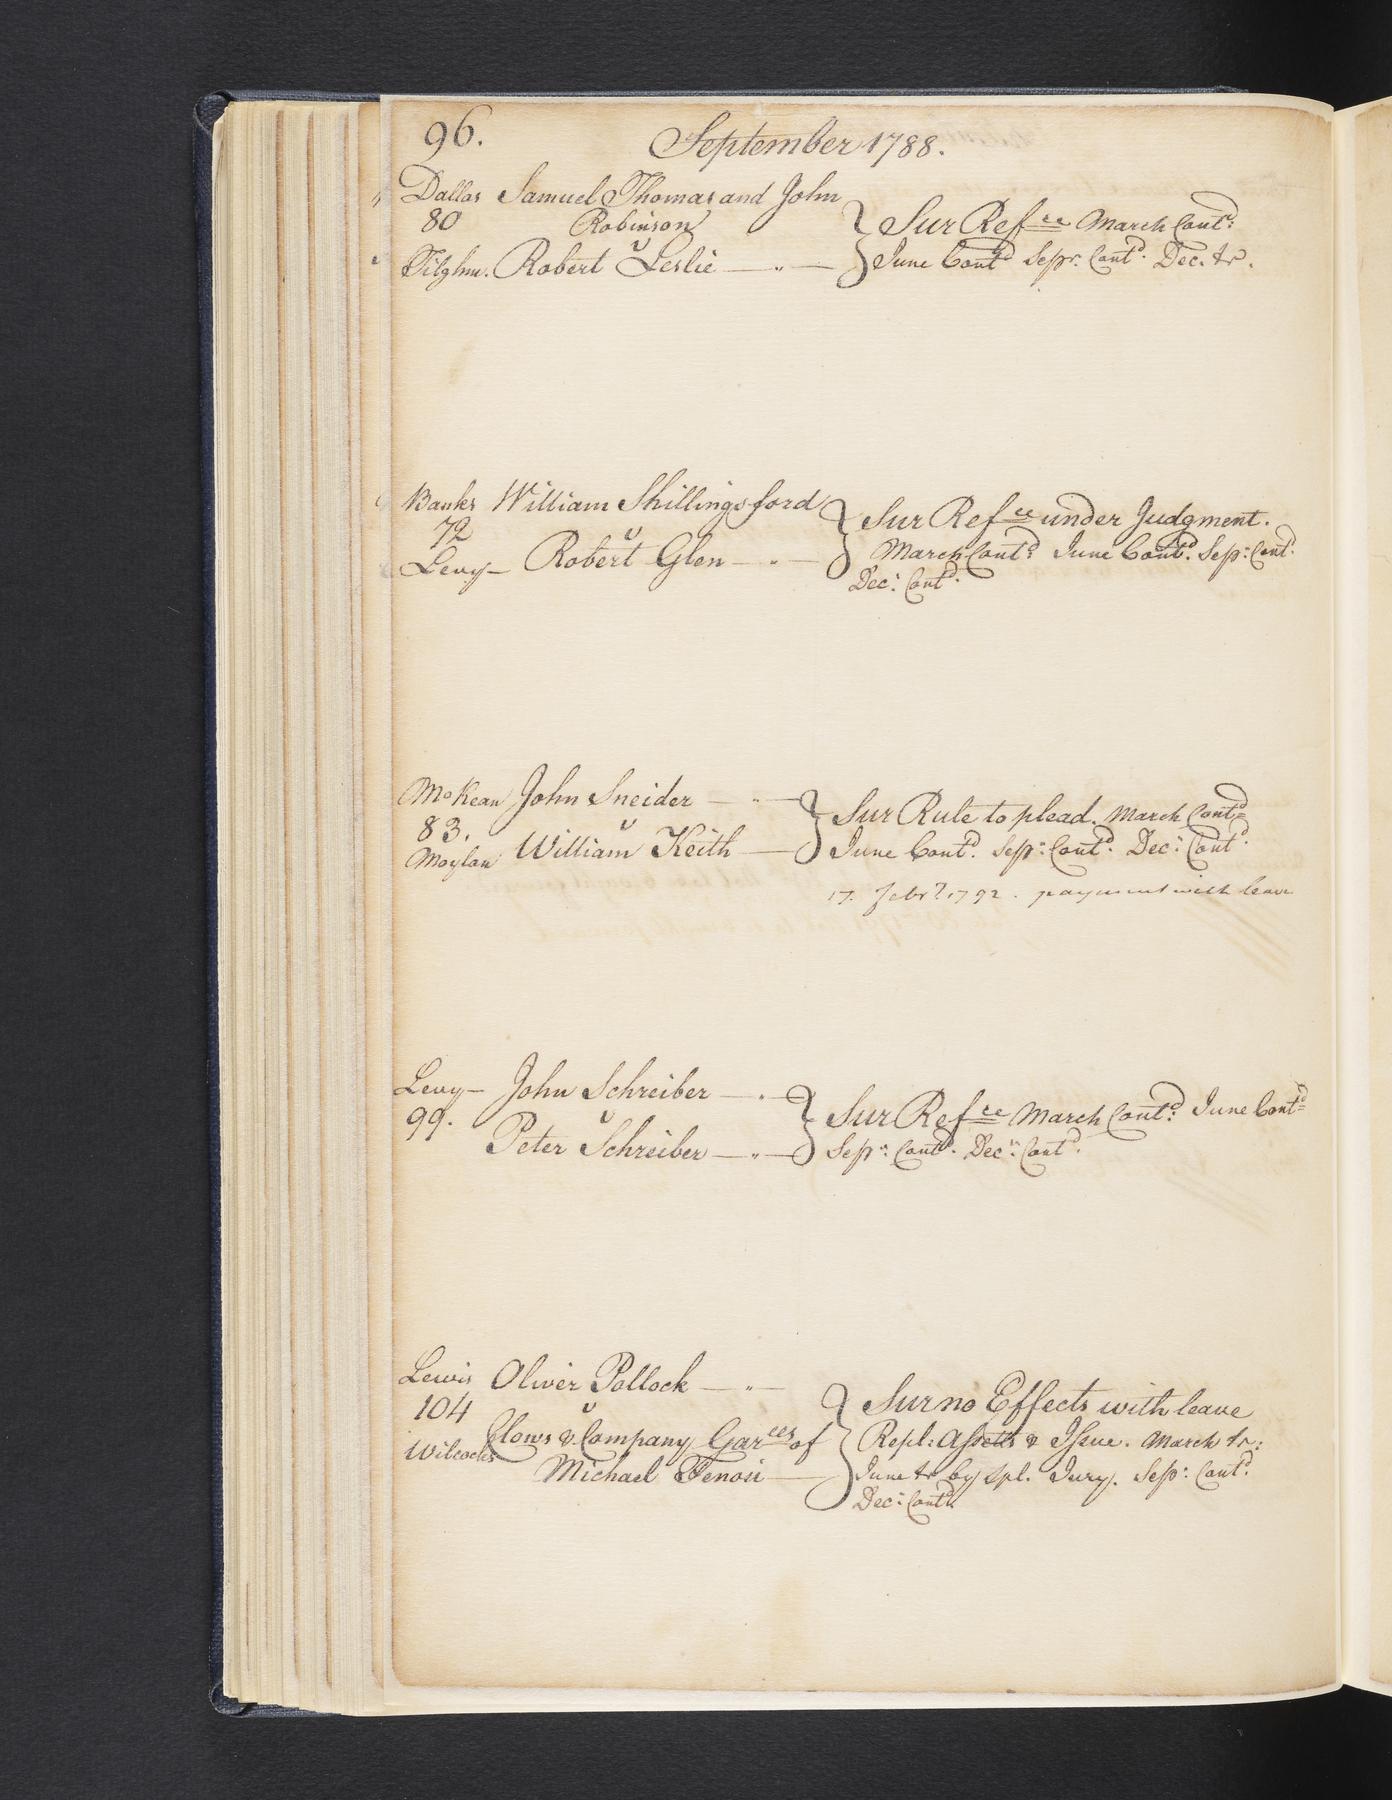 96.
September 1788.
Dallas Samuel Thomas and John
80 Robinson
v
Tilghm. Robert Leslie
Sur Refce March Contd:
June Contd Sepr. Contd. Dec. tr.
Banks William Shillingsford
72 v
Levy Robert Glen
Sur Refce under Judgment.
March Contd: June Contd. Sep: Contd.
Dec: Contd.
McKean John Sneider
83. v
Moylan William Keith
Sur Rule to plead. March Contd
June Contd. Sep: Contd. Dec: Contd.
17. Febry 1792. payment with leave
Levy John Schreiber
99. v
Peter Schreiber
Sur Refce March Contd: June Contd
Sepr: Contd. Decr: Contd.
Lewis Oliver Pollock
104 v
Clows & Company Garees of
Wilcocks
Michael Fenosi
Sur no Effects with leave
Repl: Assetts & Issue. March tr:
June tr by spl. Jury. Sep: Contd.
Dec: Contd.